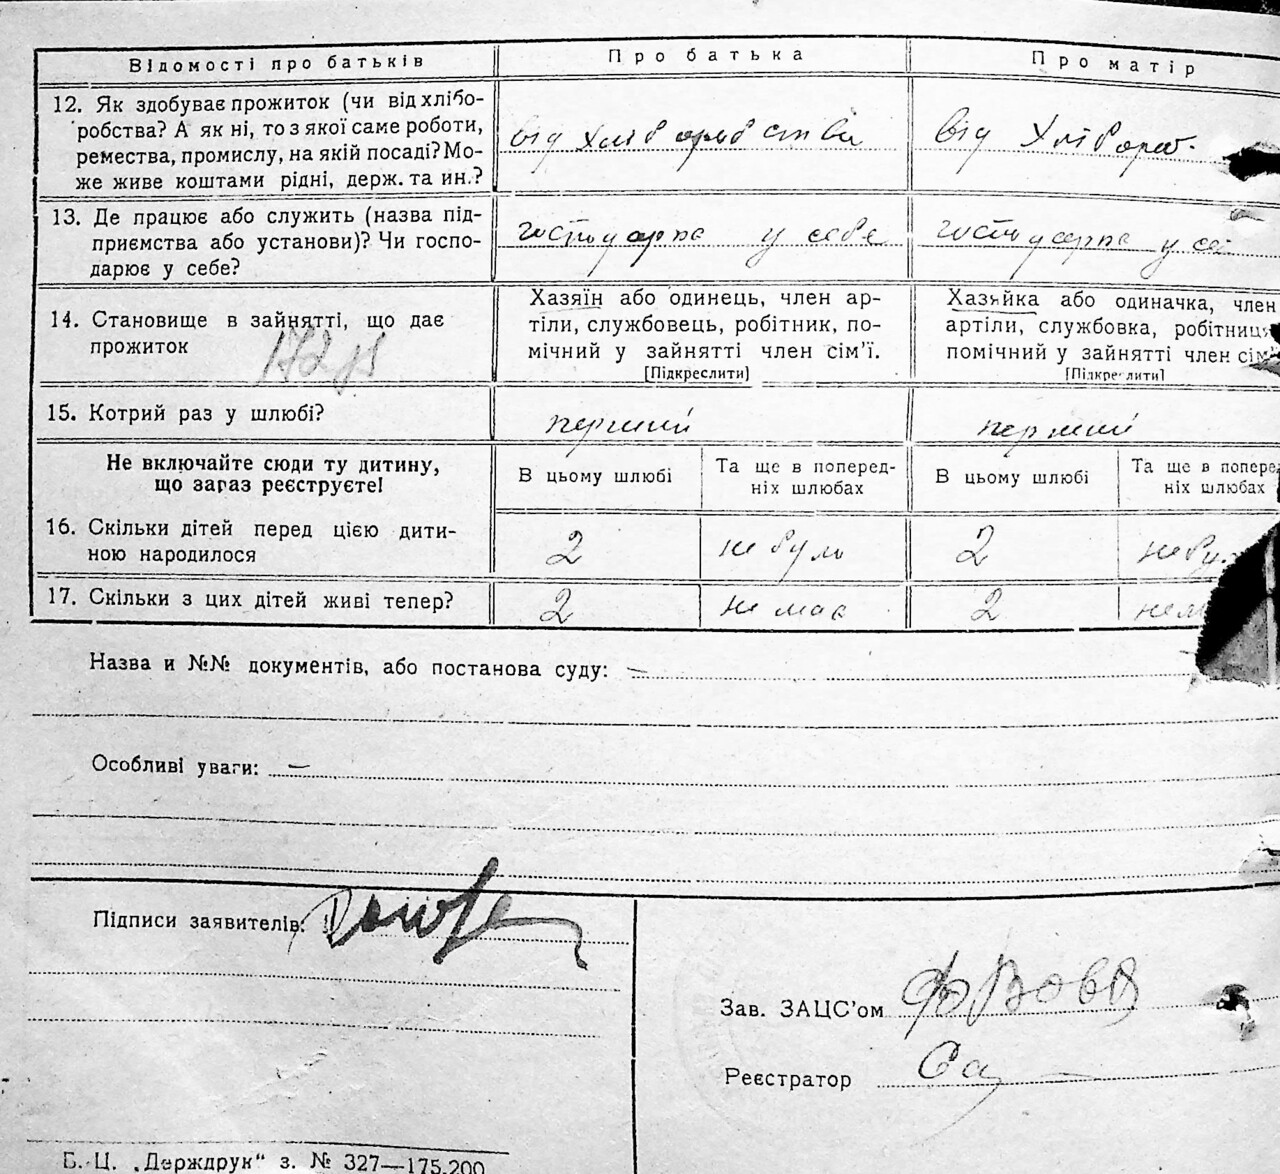 Відомості про батьків
Про батька
Про матір
12. Як здобуває прожиток (чи від хлібо-
робства? А як ні, то з якої саме роботи,
ремества, промислу, на якій посаді? Мо-
же живе коштами рідні, держ. та ин.?
від хліборобства
від хлібороб.
13. Де працює або служить (назва під-
приємства або установи)? Чи госпо-
дарює у себе?
господарка у себе
господарка у се
14. Становище в зайнятті, що дає
прожиток
Хазяїн або одинець, член ар-
тіли, службовець, робітник, по-
мічний у зайнятті член сім'ї.
[Підкреслити]
Хазяйка або одиначка, член
артіли, службовка, робітниця
помічний у зайнятті член сім'
[Підкреслити]
15. Котрий раз у шлюбі?
перший
перший
Не включайте сюди ту дитину,
що зараз реєструєте!
В цьому шлюбі
Та ще в поперед-
ніх шлюбах
В цьому шлюбі
Та ще в попере
ніх шлюбах
16. Скільки дітей перед цією дити-
ною народилося
2
не було
2
не бул
17. Скільки з цих дітей живі тепер?
2
не має
2
нем
Назва и №№ документів, або постанова суду: —
Особливі уваги: —
Підписи заявителів:
Зав. ЗАЦС'ом
Реєстратор
Б. Ц. „Держдрук“ з. № 327—175.200